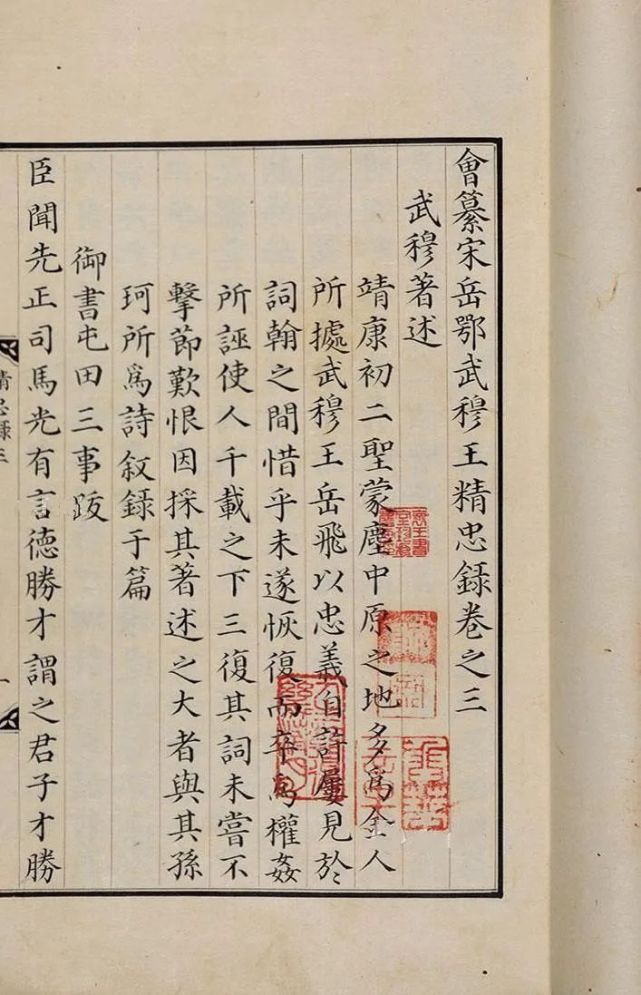 會纂宋岳鄂武穆王精忠錄卷之三
武穆著述
靖康初二聖蒙塵中原之地多爲金人
所據武穆王岳飛以忠義自許屢見於
詞翰之間惜乎未遂恢復而卒爲權姦
所誣使人千載之下三復其詞未嘗不
擊節歎恨因採其著述之大者與其孫
珂所爲詩叙錄于篇
御書屯田三事跋
臣聞先正司馬光有言德勝才謂之君子才勝